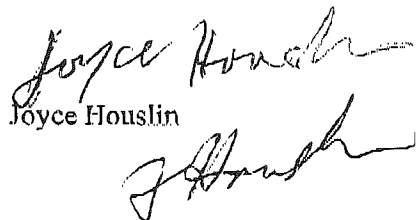 Joyce Houslin
Joyce Houslin
J Houslin